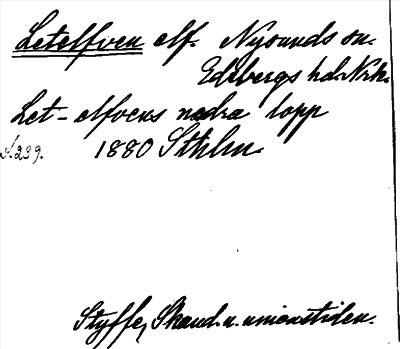 Letelfven elf. Nysunds sn.
Edsbergs hd. Nrk.
Let-elfvens nedra lopp
s. 239. 1880 Sthlm
Styffe, Skand. u. unionstiden.